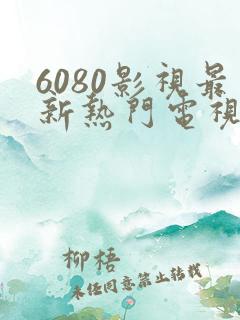 6080影視最
新熱門電視
柳梧
未经同意禁止转载